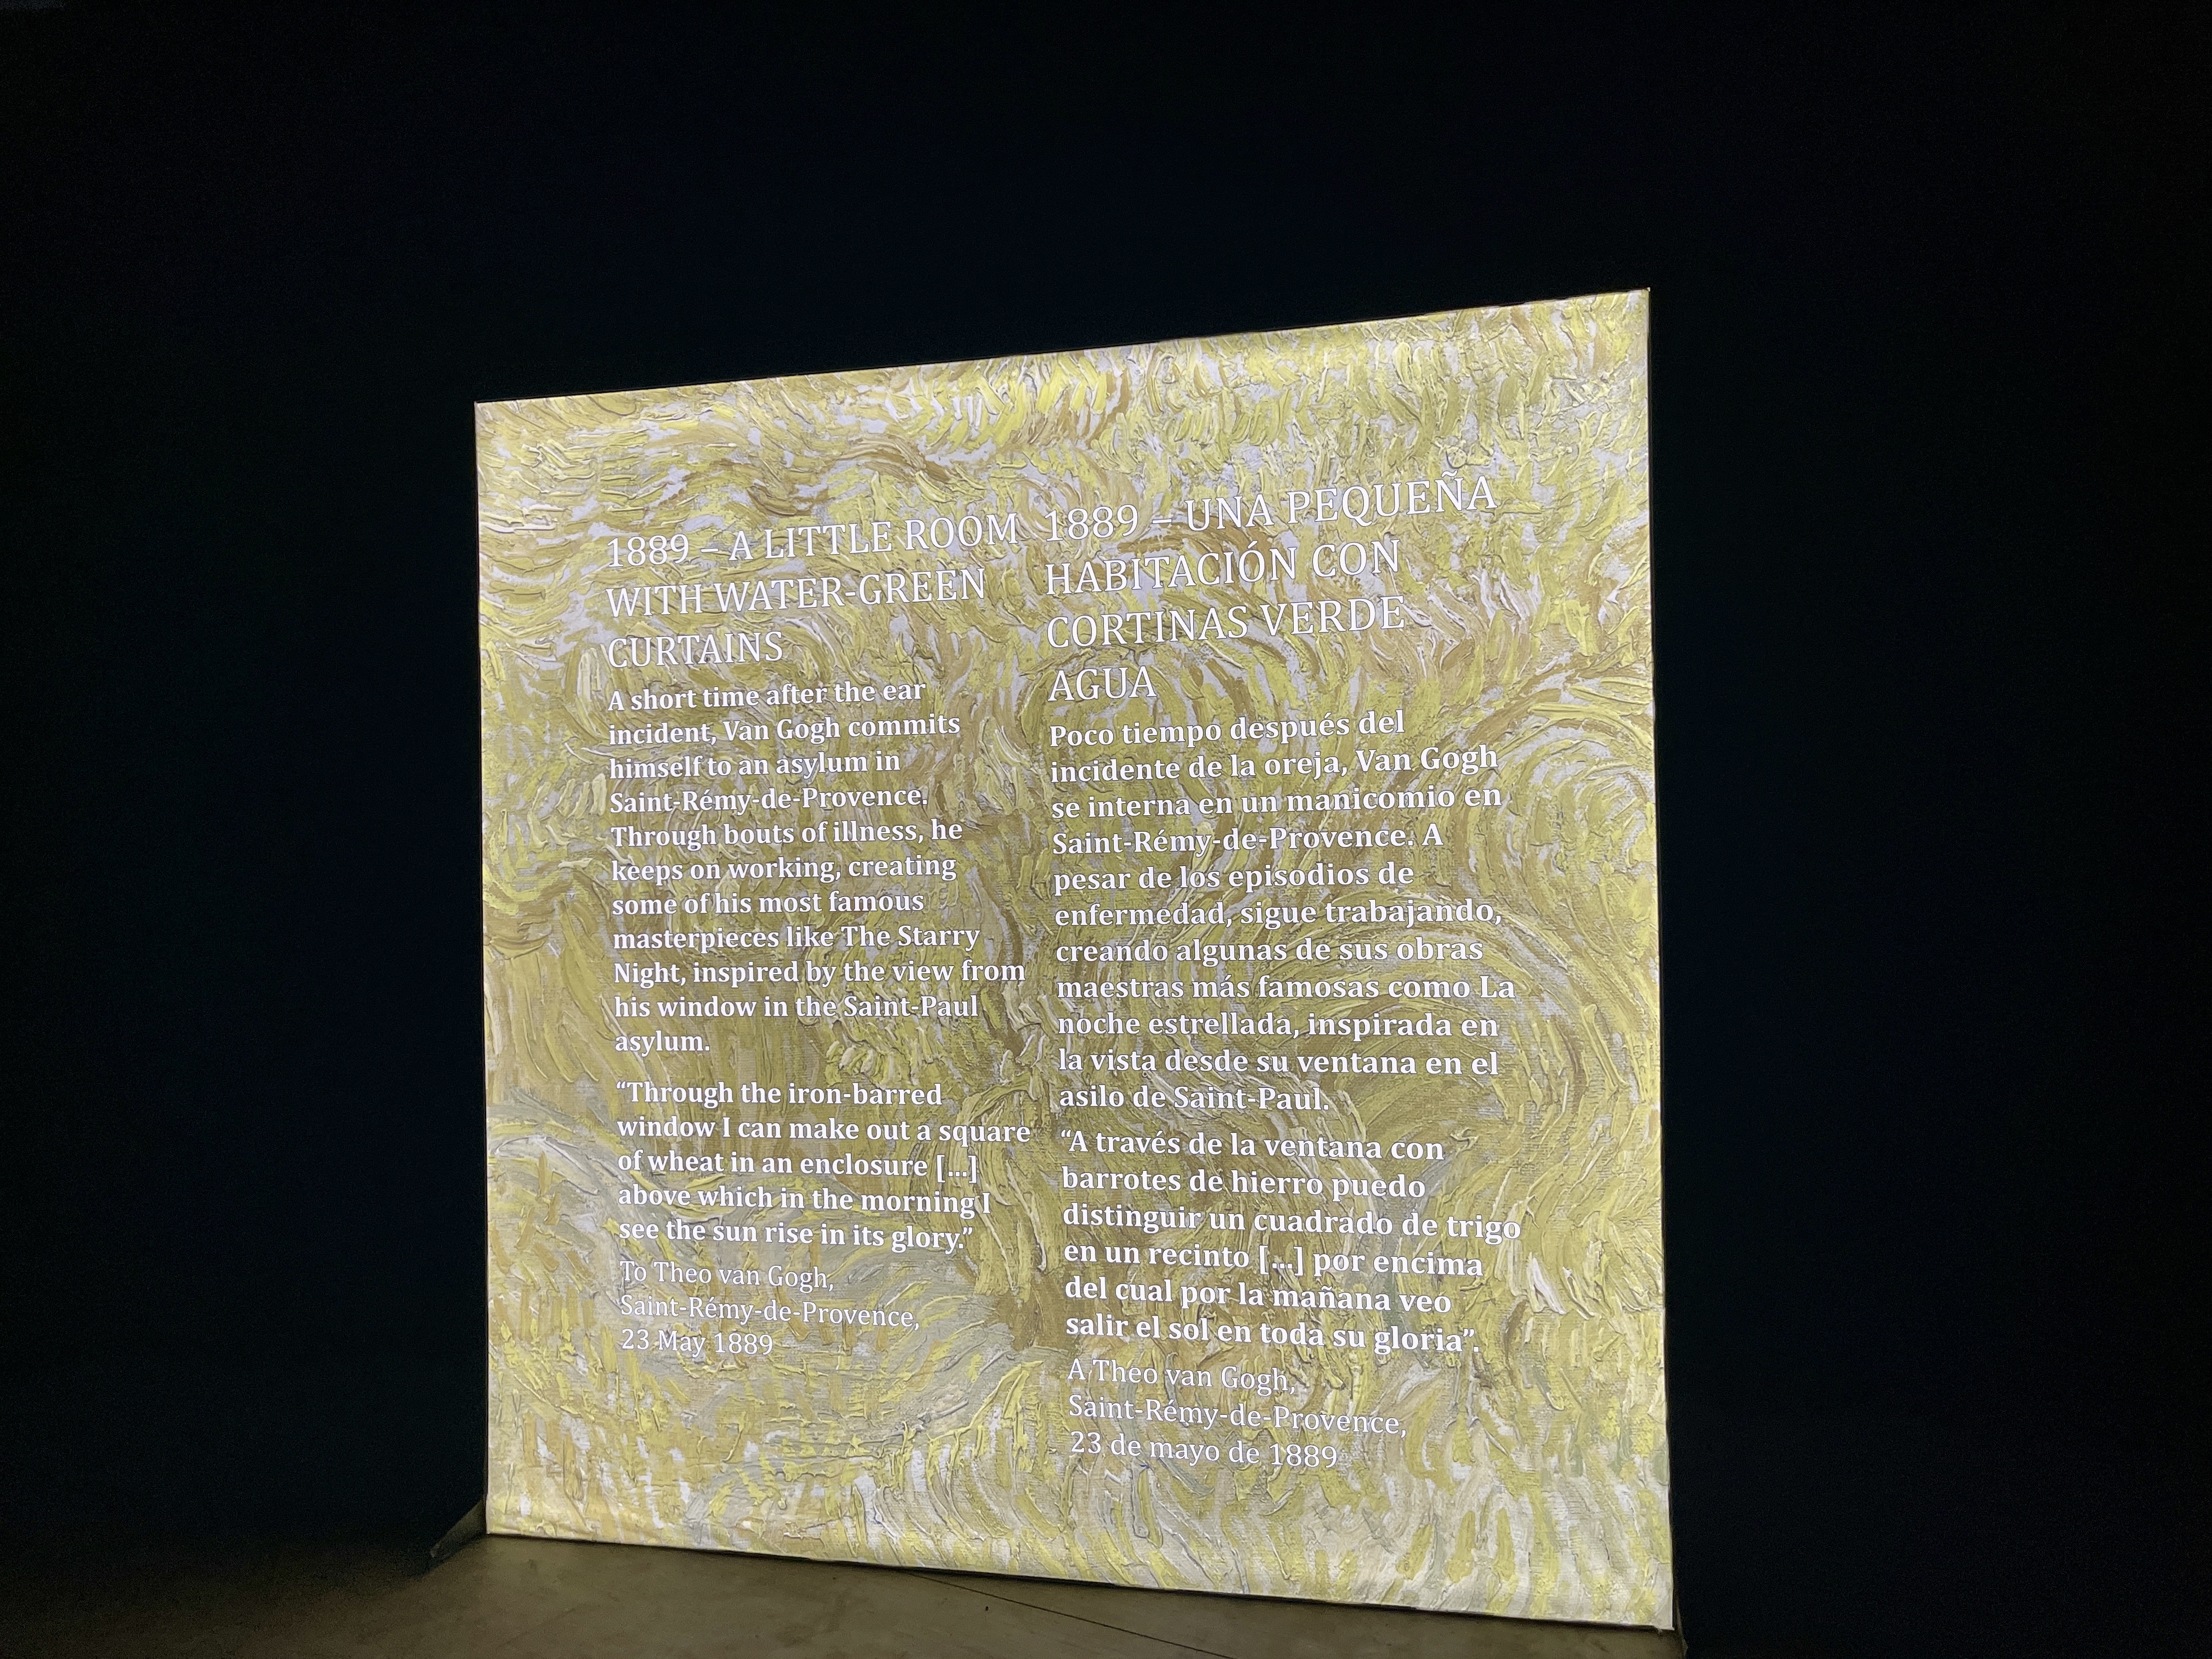 1889 – A LITTLE ROOM
WITH WATER-GREEN
CURTAINS
A short time after the ear
incident, Van Gogh commits
himself to an asylum in
Saint-Rémy-de-Provence.
Through bouts of illness, he
keeps on working, creating
some of his most famous
masterpieces like The Starry
Night, inspired by the view from
his window in the Saint-Paul
asylum.
“Through the iron-barred
window I can make out a square
of wheat in an enclosure [...]
above which in the morning I
see the sun rise in its glory.”
To Theo van Gogh,
Saint-Rémy-de-Provence,
23 May 1889
1889 – UNA PEQUEÑA
HABITACIÓN CON
CORTINAS VERDE
AGUA
Poco tiempo después del
incidente de la oreja, Van Gogh
se interna en un manicomio en
Saint-Rémy-de-Provence. A
pesar de los episodios de
enfermedad, sigue trabajando,
creando algunas de sus obras
maestras más famosas como La
noche estrellada, inspirada en
la vista desde su ventana en el
asilo de Saint-Paul.
“A través de la ventana con
barrotes de hierro puedo
distinguir un cuadrado de trigo
en un recinto [...] por encima
del cual por la mañana veo
salir el sol en toda su gloria”.
A Theo van Gogh,
Saint-Rémy-de-Provence,
23 de mayo de 1889